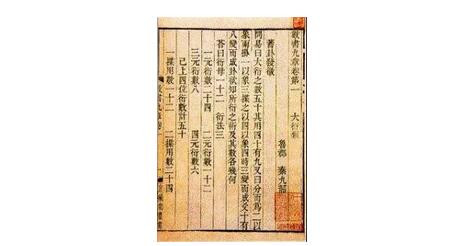 數書九章卷第一　大衍類
魯郡　秦九韶
蓍卦發微
問易曰大衍之數五十其用四十有九又曰分而爲二以
象兩掛一以象三揲之以四以象四時三變而成爻十有
八變而成卦欲知所衍之術及其數各幾何
荅曰衍母一十二　衍法三
一元衍數二十四　二元衍數一十二
三元衍數八　四元衍數六
已上四位衍數計五十
一揲用數一十二　二揲用數二十四